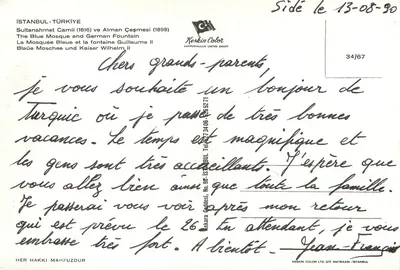 Sidé le 13-08-90
İSTANBUL-TÜRKİYE
Sultanahmet Camii (1616) ve Alman Çeşmesi (1898)
The Blue Mosque and German Fountain
La Mosquée Bleue et la fontaine Guillaume II
Blaue Moschee und Kaiser Wilhelm II
Keskin Color
34/67
Chers grands-parents,
je vous souhaite un bonjour de
Turquie où je passe de très bonnes
vacances. Le temps est magnifique et
les gens sont très accueillants. J'espère que
vous allez bien ainsi que toute la famille.
Je passerai vous voir après mon retour
qui est prévu le 26. En attendant, je vous
embrasse très fort. A bientôt. Jean-François
HER HAKKI MAHFUZDUR
KESKIN COLOR LTD. ŞTİ. İSTANBUL